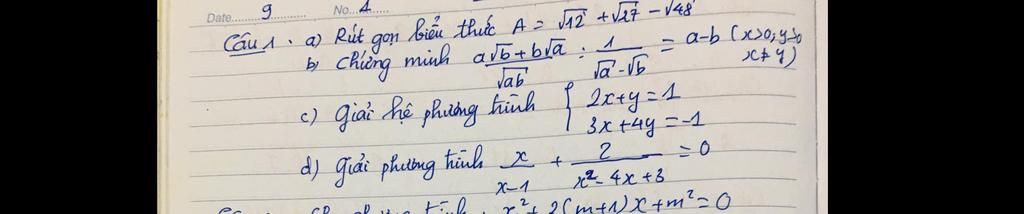 Date 9 No. 1
Câu 1. a) Rút gọn biểu thức A = √12 + √27 - √48
b) Chứng minh (a√b + b√a)/√ab : 1/(√a - √b) = a-b (x>0, y>0 x≠y)
c) Giải hệ phương trình { 2x+y = 1
3x+4y = -1
d) Giải phương trình x/(x-1) + 2/(x²-4x+3) = 0
x² + 2(m+1)x + m² = 0